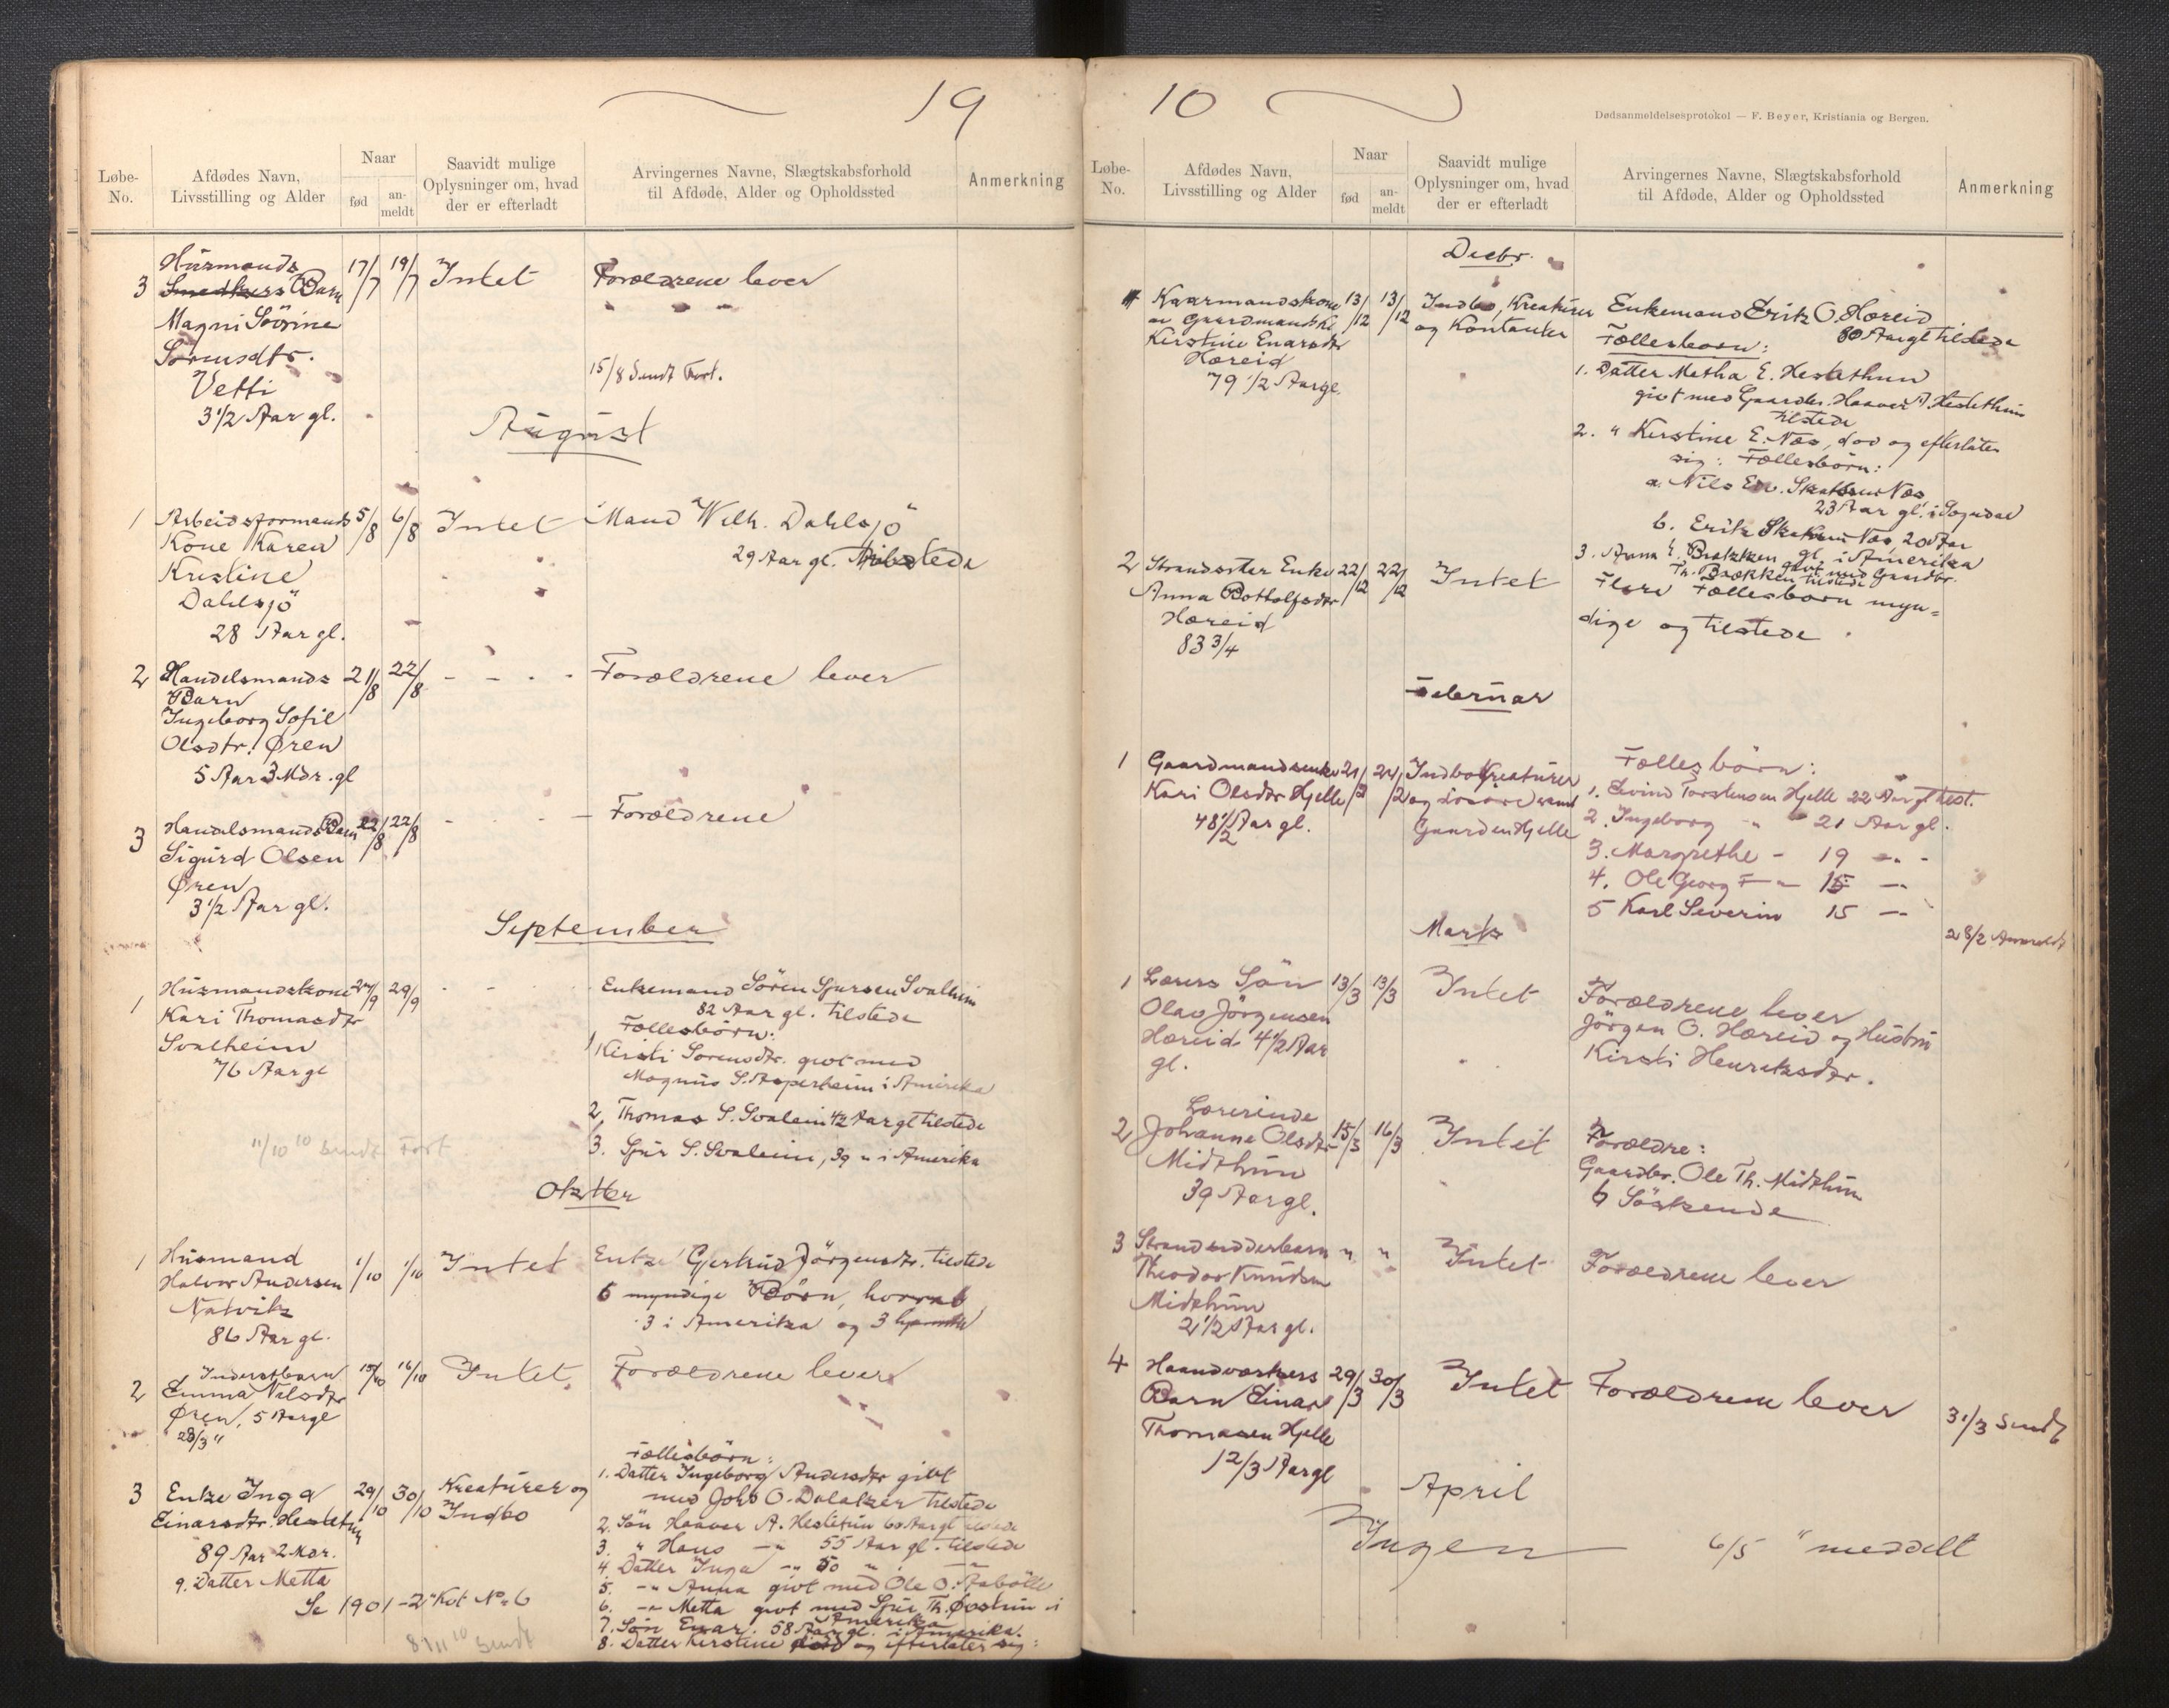 19
Løbe-
No.
Afdødes Navn,
Livsstilling og Alder
Naar
fød
an-
meldt
Saavidt mulige
Oplysninger om, hvad
der er efterladt
Arvingernes Navne, Slægtskabsforhold
til Afdøde, Alder og Opholdssted
Anmerkning
Husmands
3 Barn 17/7 19/7 Intet Forældrene lever
Magni Sörine
Sörensdtr.
Vetti
3 1/2 Aar gl.
15/8 Sendt Fort.
August
1 Arbeidsformands 5/8 6/8 Intet Mand Wilh. Dahlsjö
Kone Karen 29 Aar gl. tilstede
Kristine
Dahlsjö
28 Aar gl.
2 Handelsmands 21/8 22/8 - - - - Forældrene lever
Barn
Ingeborg Sofie
Olsdtr. Øren
5 Aar 3 Mdr. gl
3 Handelsmands Barn 22/8 22/8 - - - Forældrene
Sigurd Olsen
Øren
3 1/2 Aar gl.
September
1 Husmandskone 27/9 29/9 - - - Enkemand Sören Sjursen Svalheim
Kari Thomasdtr 82 Aar gl. tilstede
Svalheim Fællesbörn:
76 Aar gl
1 Kirsti Sorensdtr. givt med
Magnus S. Asperheim i Amerika
2, Thomas S. Svaleim 42 Aar gl tilstede
3. Sjur S. Svaleim, 39 " i Amerika
11/10 10 sendt Fort
Oktbr
1 Husmand 1/10 1/10 Intet Enke Gjertrud Jörgensdtr. tilstede
Halvor Andersen 6 myndige Börn, hvoraf
Natvik 3 i Amerika og 3 hjemme
86 Aar gl.
2 Inderstbarn 15/10 16/10 Intet Forældrene lever
Emma Nilsdtr
Øren, 5 Aar gl
" 28/3 "
Fællesbörn:
3 Enke Inga 29/10 30/10 Kreaturer og 1. Datter Ingeborg Andersdtr givt
Einarsdtr. Hestetun Indbo med Johs O. Dalaker tilstede
89 Aar 2 Mdr. 2. Sön Haavor A. Hestetun 60 Aar gl tilstede
3. " Hans -"- 55 Aar gl. tilstede
9. Datter Metta 4. Datter Inga -"- 50 " -"-
5. -"- Anna givt med Ole O.
Se 1901 - 2det Kvt No 6 6. -"- Metta givt med Sjur Th. Øvstun i
Amerika
7. Sön Einar. 58 Aar gl. i Amerika.
8/11 10 sendt 8. Datter Kirstine död og efterlater sig:
10
Dødsanmeldelsesprotokol — F. Beyer, Kristiania og Bergen.
Løbe-
No.
Afdødes Navn,
Livsstilling og Alder
Naar
fød
an-
meldt
Saavidt mulige
Oplysninger om, hvad
der er efterladt
Arvingernes Navne, Slægtskabsforhold
til Afdøde, Alder og Opholdssted
Anmerkning
Decbr.
1 Kaarmandskone 13/12 13/12 Indbo, Kreaturer Enkemand Erik O. Hæreid
og Kontanter 80 Aar gl tilstede
Kirstine Enarsdtr Fællesbörn:
Hæreid 1. Datter Metha E. Hestethun
79 1/2 Aar gl. givt med Gaardbr. Haavor A. Hestethun
tilstede
2. " Kirstine E. Næs, död og efterlater
sig: Fællesbörn:
a. Nils Er. Næs
23 Aar gl. i Sogndal
b. Erik Næs 20 Aar
gl. i Amerika
3. Anna E. Brækken givt med Gaardbr.
Th. Brækken tilstede
2 Strandsitter Enke 22/12 22/12 Intet Flere Fællesbörn myn-
Anna Bottolfsdtr dige og tilstede
Hæreid
83 3/4
Februar
1 Gaardmandsenke 21/2 24/2 Indbo, Kreaturer Fællesbörn:
Kari Olsdtr Hjelle og samt 1. Eivind Torstensen Hjelle 22 Aar gl tilst.
48 1/2 Aar gl. Gaarden Hjelle 2. Ingeborg -"- 21 Aar gl.
3. Margrethe - 19 -"-
4. Ole Georg T -"- 15 -"-
5 Karl Severin 15 -"-
28/2 Anmeldt
Marts
1 Lærers Sön 13/3 13/3 Intet Forældrene lever
Olav Jörgensen Jörgen O. Hæreid og Hustru
Hæreid 4 1/2 Aar Kirsti Henriksdtr.
gl.
Lærerinde
2 Johanne Olsdtr 15/3 16/3 Intet Forældre:
Midthun Gaardbr. Ole Th. Midthun
39 Aar gl. 6 Söskende
3 Strandsidderbarn " " Intet Forældrene lever
Theodor Knudsen
Midthun
2 1/2 Aar gl.
4 Haandværkers 29/3 30/3 Intet Forældrene lever
Barn Einar
Thomasen Hjelle
1 2/3 Aar gl
31/3 sendt
April
Ingen 6/5 " meddelt